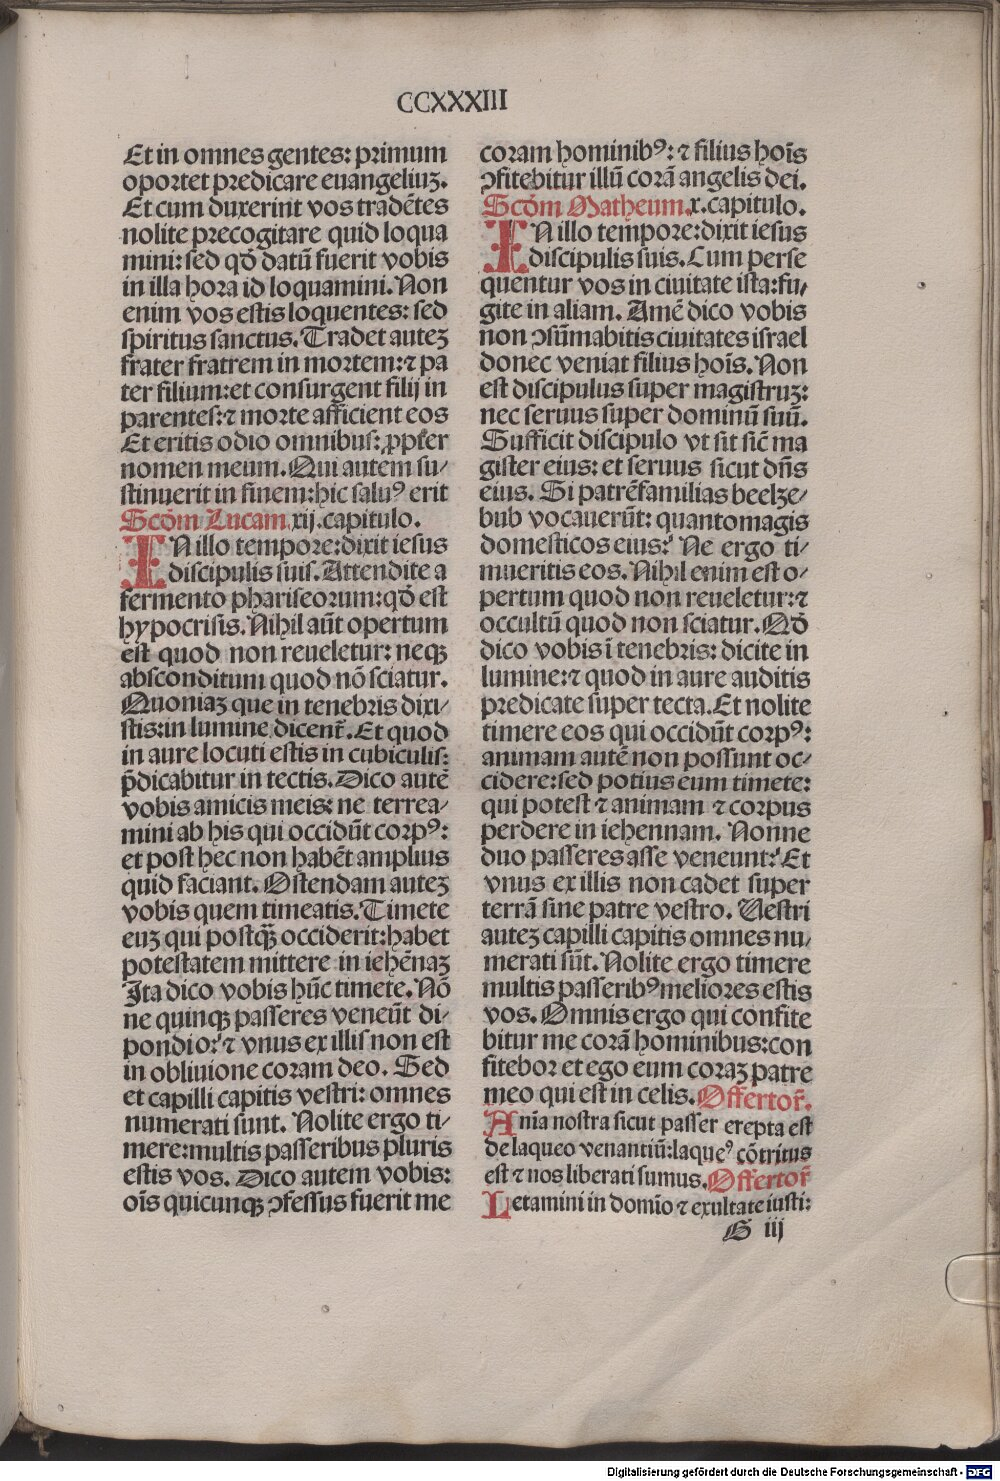 CCXXXIII
Et in omnes gentes: primum
oportet predicare euangeliuꝫ.
Et cum duxerint vos tradētes
nolite precogitare quid loqua
mini: sed qḋ datū fuerit vobis
in illa hora id loquamini. Non
enim vos estis loquentes: sed
spiritus sanctus. Tradet auteꝫ
frater fratrem in mortem: ⁊ pa
ter filium: et consurgent filij in
parentes: ⁊ morte afficient eos
Et eritis odio omnibus: ꝓpter
nomen meum. Qui autem su⸗
stinuerit in finem: hic saluꝰ erit
Scḋm Lucam. xij. capitulo.
IN illo tempore: dixit iesus
discipulis suis. Attendite a
fermento phariseorum: qḋ est
hypocrisis. Nihil aūt opertum
est quod non reueletur: neqꝫ
absconditum quod nō sciatur.
Quoniaꝫ que in tenebris dixi⸗
stis: in lumine dicent᷑. Et quod
in aure locuti estis in cubiculis:
p̄dicabitur in tectis. Dico autē
vobis amicis meis: ne terrea⸗
mini ab his qui occidūt corpꝰ:
et post hec non habēt amplius
quid faciant. Ostendam auteꝫ
vobis quem timeatis. Timete
euꝫ qui postqꝫ̄ occiderit: habet
potestatem mittere in iehēnaꝫ
Ita dico vobis hūc timete. Nō
ne quinqꝫ passeres veneūt di⸗
pondio? ⁊ vnus ex illis non est
in obliuione coram deo. Sed
et capilli capitis vestri: omnes
numerati sunt. Nolite ergo ti⸗
mere: multis passeribus pluris
estis vos. Dico autem vobis:
oīs quicunqꝫ ꝯfessus fuerit me
coram hominibꝰ: ⁊ filius hoīs
ꝯfitebitur illū corā angelis dei.
Scḋm Matheum. x. capitulo.
IN illo tempore: dixit iesus
discipulis suis. Cum perse
quentur vos in ciuitate ista: fu⸗
gite in aliam. Amē dico vobis
non ꝯsūmabitis ciuitates israel
donec veniat filius hoīs. Non
est discipulus super magistruꝫ:
nec seruus super dominū suū.
Sufficit discipulo vt sit sic̄ ma
gister eius: et seruus sicut dn̄s
eius. Si patrēfamilias beelze⸗
bub vocauerūt: quantomagis
domesticos eius? Ne ergo ti⸗
mueritis eos. Nihil enim est o⸗
pertum quod non reueletur: ⁊
occultū quod non sciatur. Qḋ
dico vobis ī tenebris: dicite in
lumine: ⁊ quod in aure auditis
predicate super tecta. Et nolite
timere eos qui occidūt corpꝰ:
animam autē non possunt oc⸗
cidere: sed potius eum timete:
qui potest ⁊ animam ⁊ corpus
perdere in iehennam. Nonne
duo passeres asse veneunt? Et
vnus ex illis non cadet super
terrā sine patre vestro. Vestri
auteꝫ capilli capitis omnes nu⸗
merati sūt. Nolite ergo timere
multis passeribꝰ meliores estis
vos. Omnis ergo qui confite
bitur me corā hominibus: con
fitebor et ego eum coraꝫ patre
meo qui est in celis. Offertor᷑.
Anīa nostra sicut passer erepta est
de laqueo venantiū: laqueꝰ cōtritus
est ⁊ nos liberati sumus. Offertor᷑
Letamini in domīo ⁊ exultate iusti:
G iij
Digitalisierung gefördert durch die Deutsche Forschungsgemeinschaft - DFG